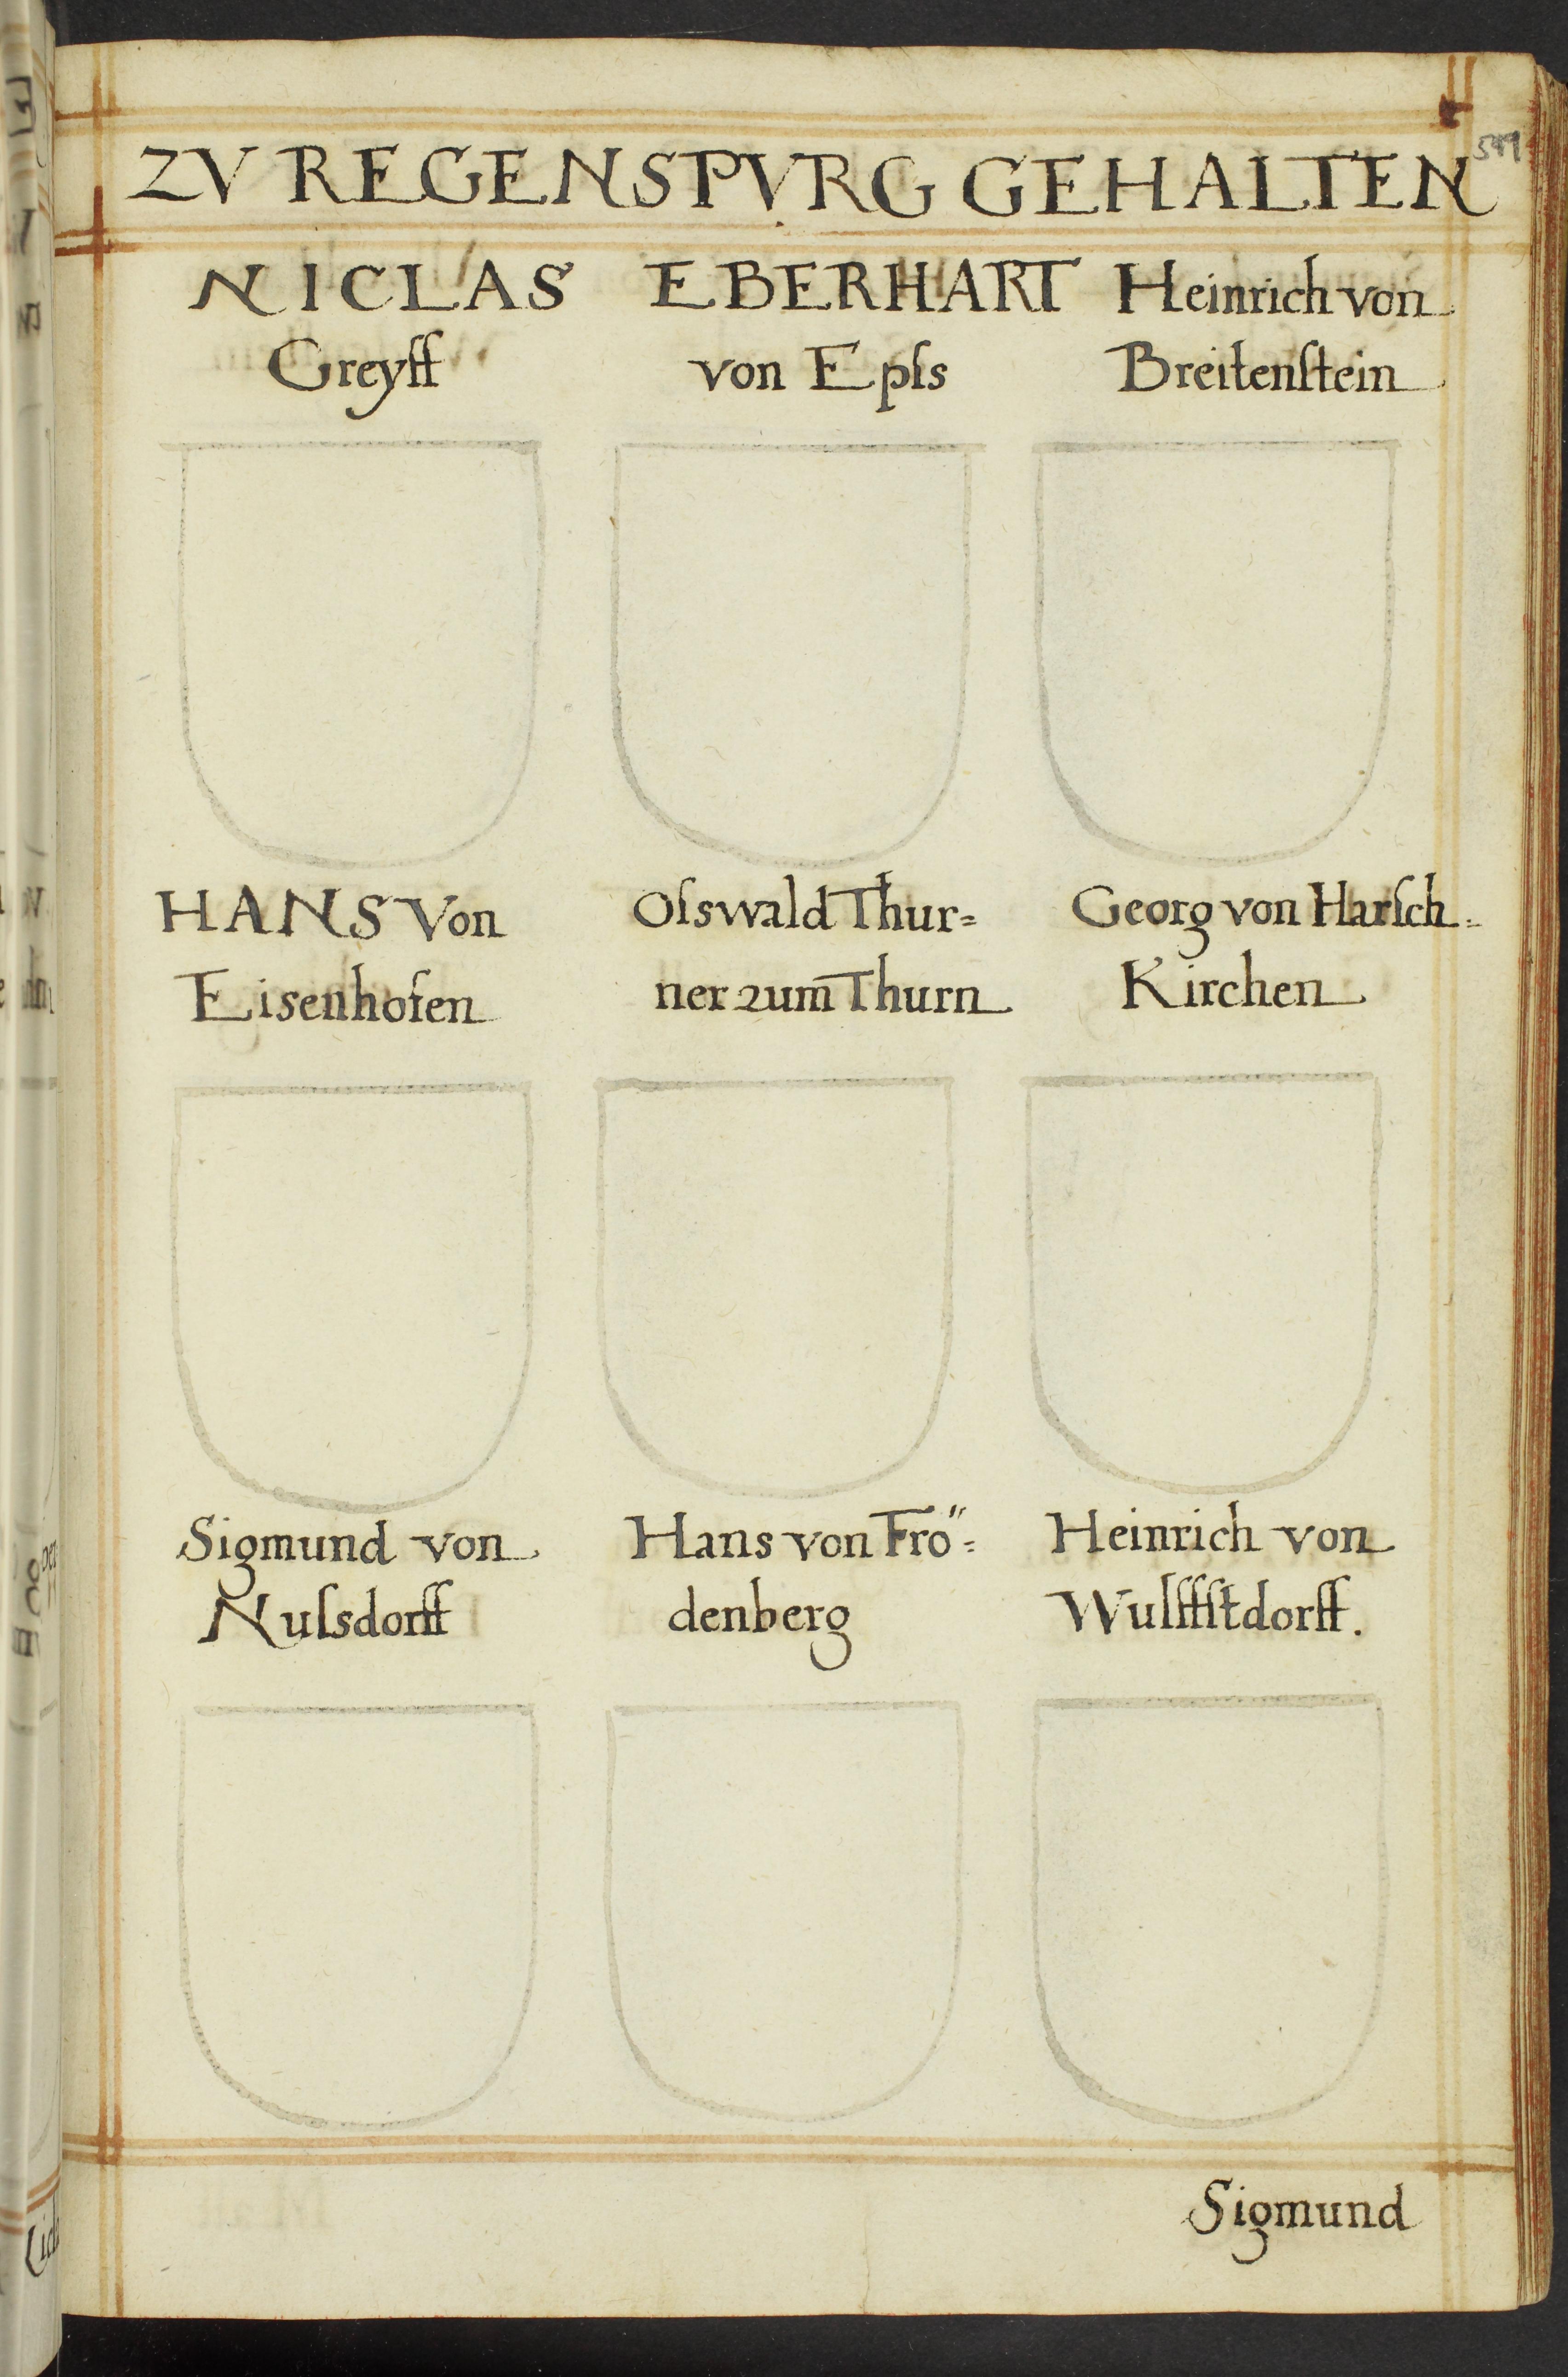 ZV REGENSPVRG GEHALTEN
NICLAS
Greyff
EBERHART
von Epſs
Heinrich von
Breitenſtein
HANS Von
Eisenhofen
Oſswald Thur=
ner zum̄ Thurn
Georg von Harſch=
Kirchen
Sigmund von
Nuſsdorff
Hans von Frö=
denberg
Heinrich von
Wulffſtdorff.
Sigmund